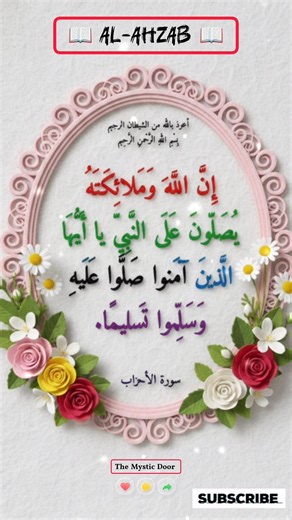 AL-AHZAB
أعوذ بالله من الشيطان الرجيم
بِسْمِ اللهِ الرَّحْمٰنِ الرَّحِيمِ
إِنَّ اللَّهَ وَمَلَائِكَتَهُ
يُصَلُّونَ عَلَى النَّبِيِّ يَا أَيُّهَا
الَّذِينَ آمَنُوا صَلُّوا عَلَيْهِ
وَسَلِّمُوا تَسْلِيمًا.
سورة الأحزاب
The Mystic Door
SUBSCRIBE